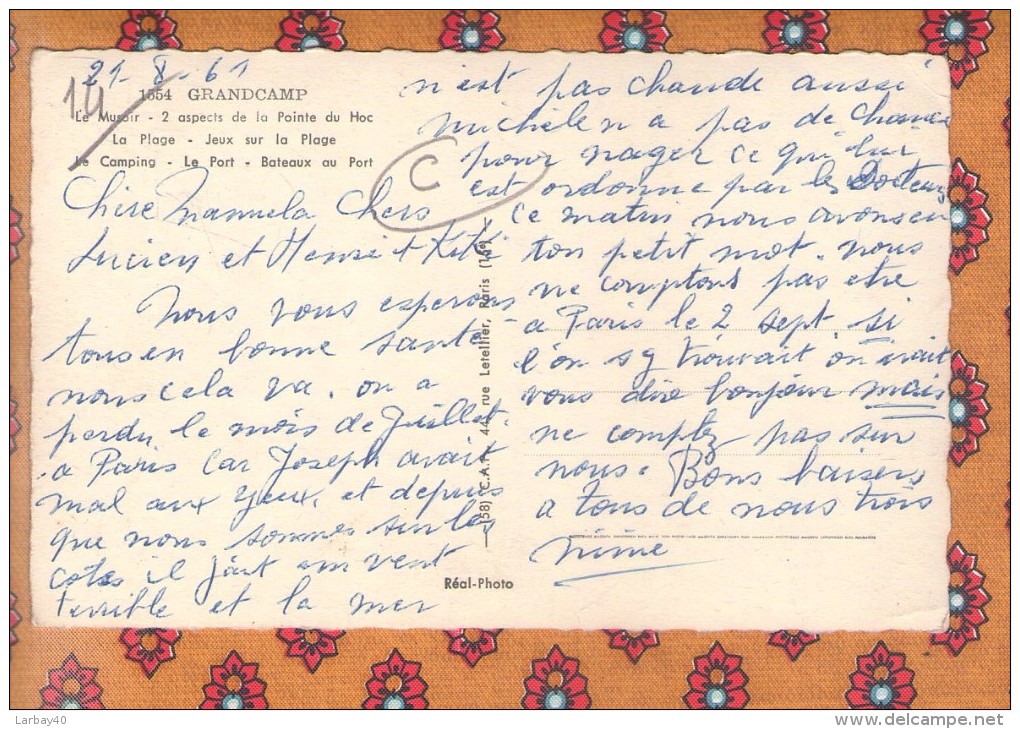 21-8-61
14
1554 GRANDCAMP
Le Musoir - 2 aspects de la Pointe du Hoc
La Plage - Jeux sur la Plage
Le Camping - Le Port - Bateaux au Port
C
Chère Manuela Chers
Lucien et Henri + Kiki
Nous vous esperons
tous en bonne santé
nous cela va. on a
perdu le mois de Juillet
a Paris car Joseph avait
mal aux yeux, et depuis
que nous sommes sur les
cotes il fait un vent
terrible et la mer
n'est pas chaude aussi
michèle n a pas de chance
pour nager ce qui lui
est ordonne par les Docteurs
ce matin nous avons eu
ton petit mot. nous
ne comptons pas etre
a Paris le 2 sept. si
l'on s y trouvait on irait
vous dire bonjour mais
ne comptez pas sur
nous. Bons baisers
a tous de nous trois
nine
(58) C.A.P. 44, rue Letellier, Paris (15e)
Réal-Photo
Larbay40
delcampe.net